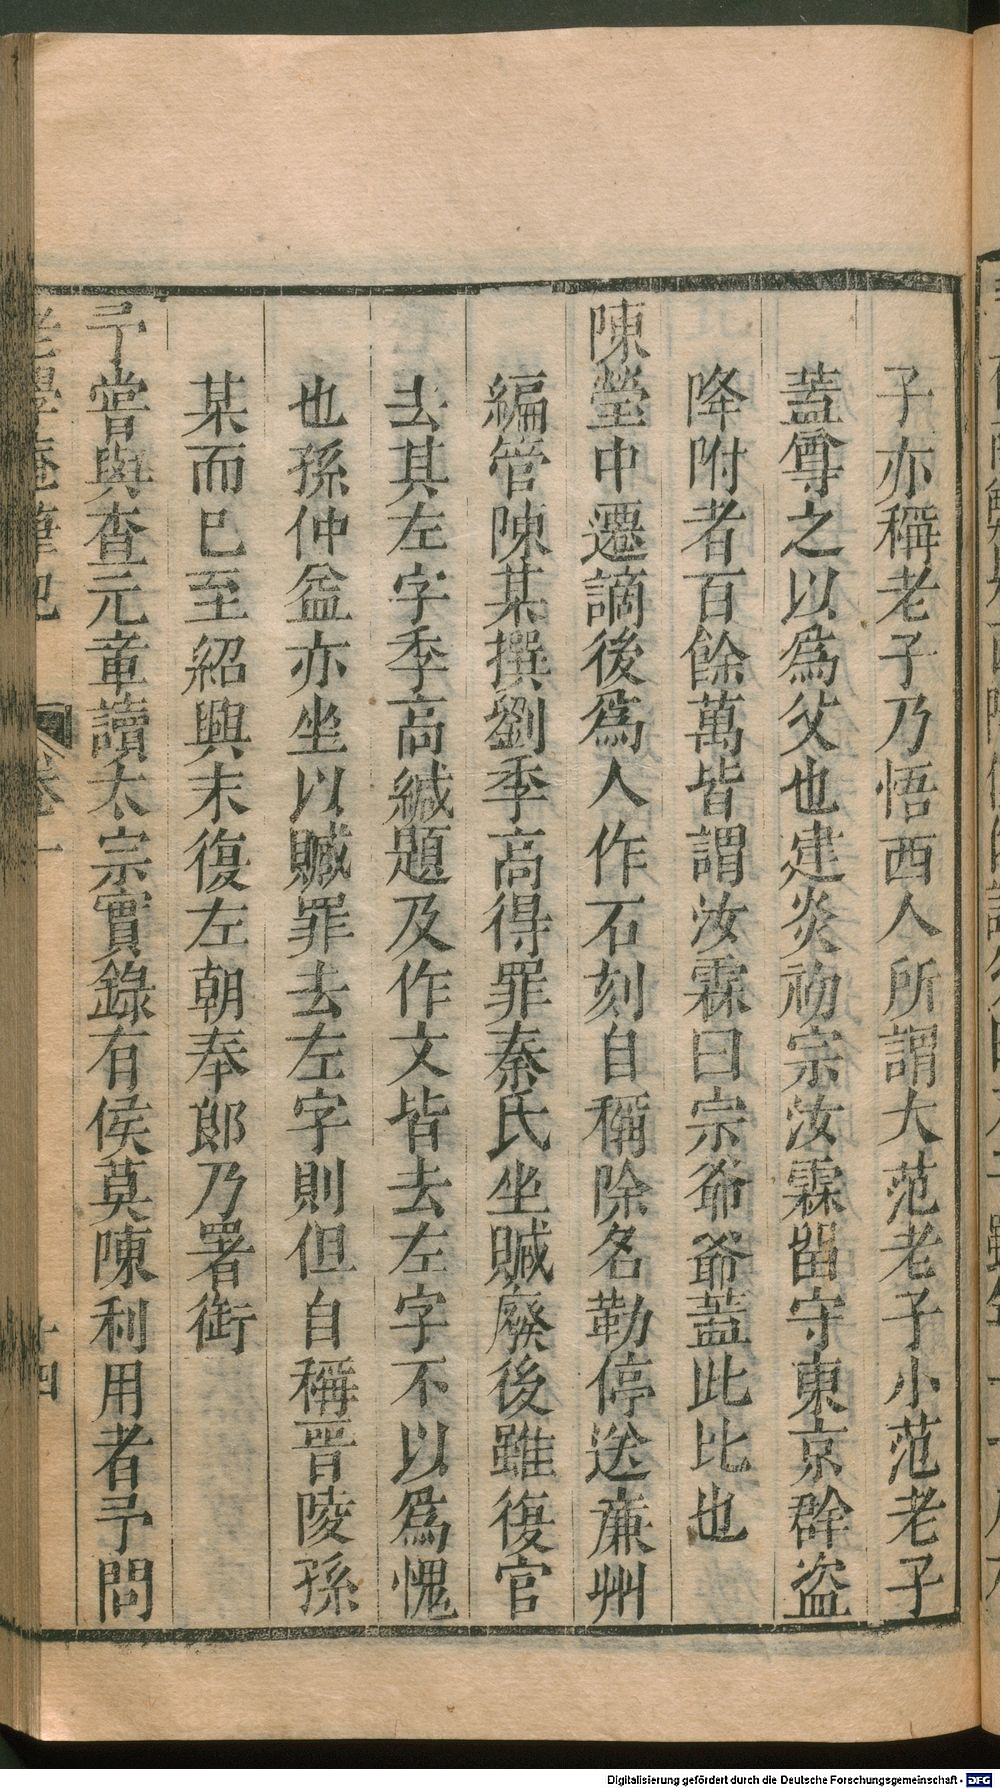 子亦稱老子乃悟西人所謂大范老子小范老子
蓋尊之以爲父也建炎初宗汝霖留守東京群盜
降附者百餘萬皆謂汝霖曰宗爺爺蓋此比也
陳瑩中遷謫後爲人作石刻自稱除名勒停送廉州
編管陳某撰劉季高得罪秦氏坐贓廢後雖復官
去其左字季高緘題及作文皆去左字不以爲愧
也孫仲益亦坐以贓罪去左字則但自稱晉陵孫
某而已至紹興末復左朝奉郎乃署銜
予嘗與查元章讀太宗實錄有侯莫陳利用者予問
老學庵筆記 卷一 十四
Digitalisierung gefördert durch die Deutsche Forschungsgemeinschaft - DFG